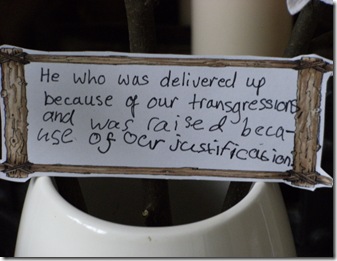 He who was delivered up
because of our transgressions
and was raised beca-
use of our justification